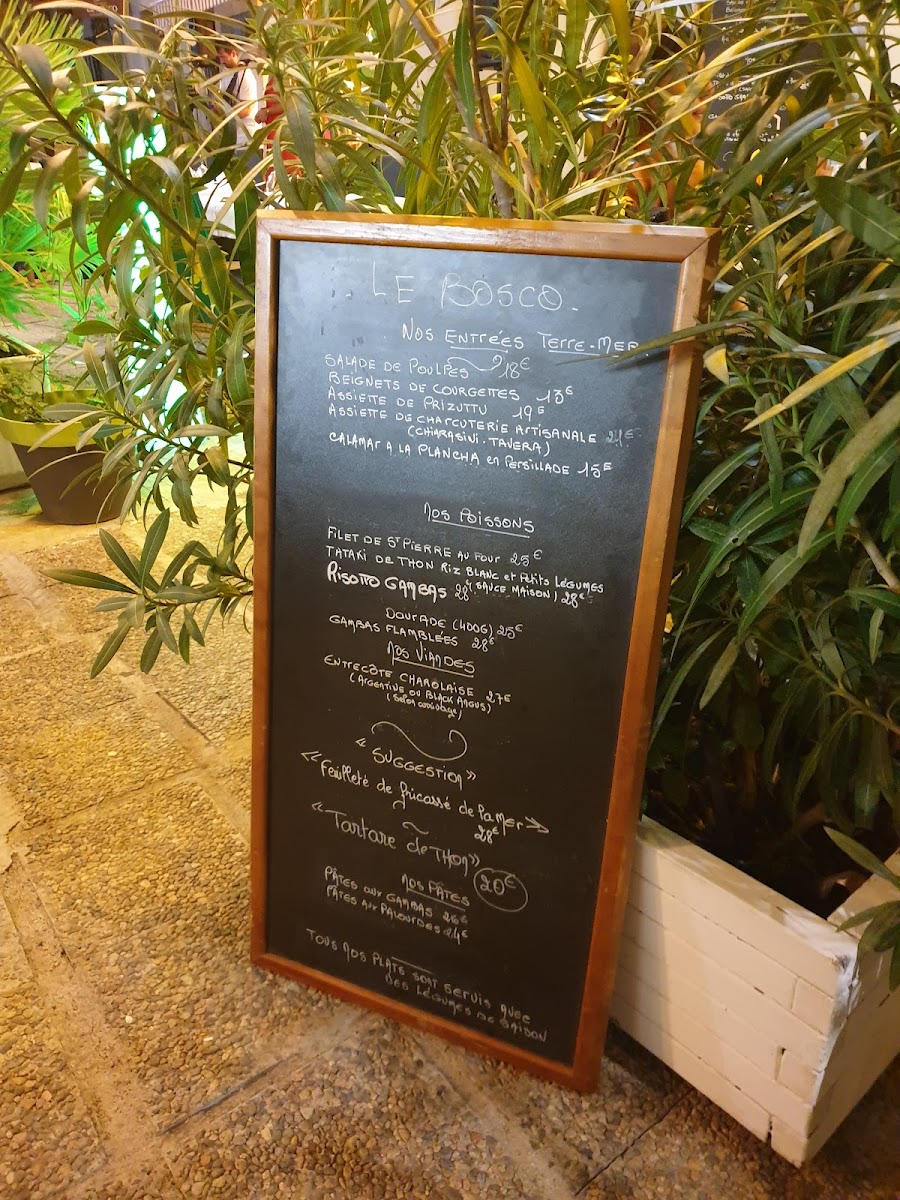 LE BOSCO.
NOS ENTRÉES TERRE-MER
SALADE DE POULPES 18€
BEIGNETS DE COURGETTES 13€
ASSIETTE DE PRIZUTTU 19€
ASSIETTE DE CHARCUTERIE ARTISANALE 21€
(CHIARASINI-TAVERA)
CALAMAR A LA PLANCHA en PERSILLADE 15€
NOS POISSONS
FILET DE ST PIERRE AU FOUR 25€
TATAKI DE THON RIZ BLANC et PETITS LÉGUMES
(SAUCE MAISON) 28€
RISOTTO GAMBAS 28€
DAURADE (400G) 25€
GAMBAS FLAMBLÉES 28€
NOS VIANDES
ENTRECÔTE CHAROLAISE 27€
(ARGENTINE OU BLACK ANGUS)
(Selon arrivage)
"SUGGESTION"
"Feuilleté de fricassé de la MER"
28€
"Tartare de THON"
20€
NOS PÂTES
PÂTES aux GAMBAS 26€
PÂTES aux PALOURDES 24€
TOUS NOS PLATS SONT SERVIS AVEC
DES LÉGUMES DE SAISON